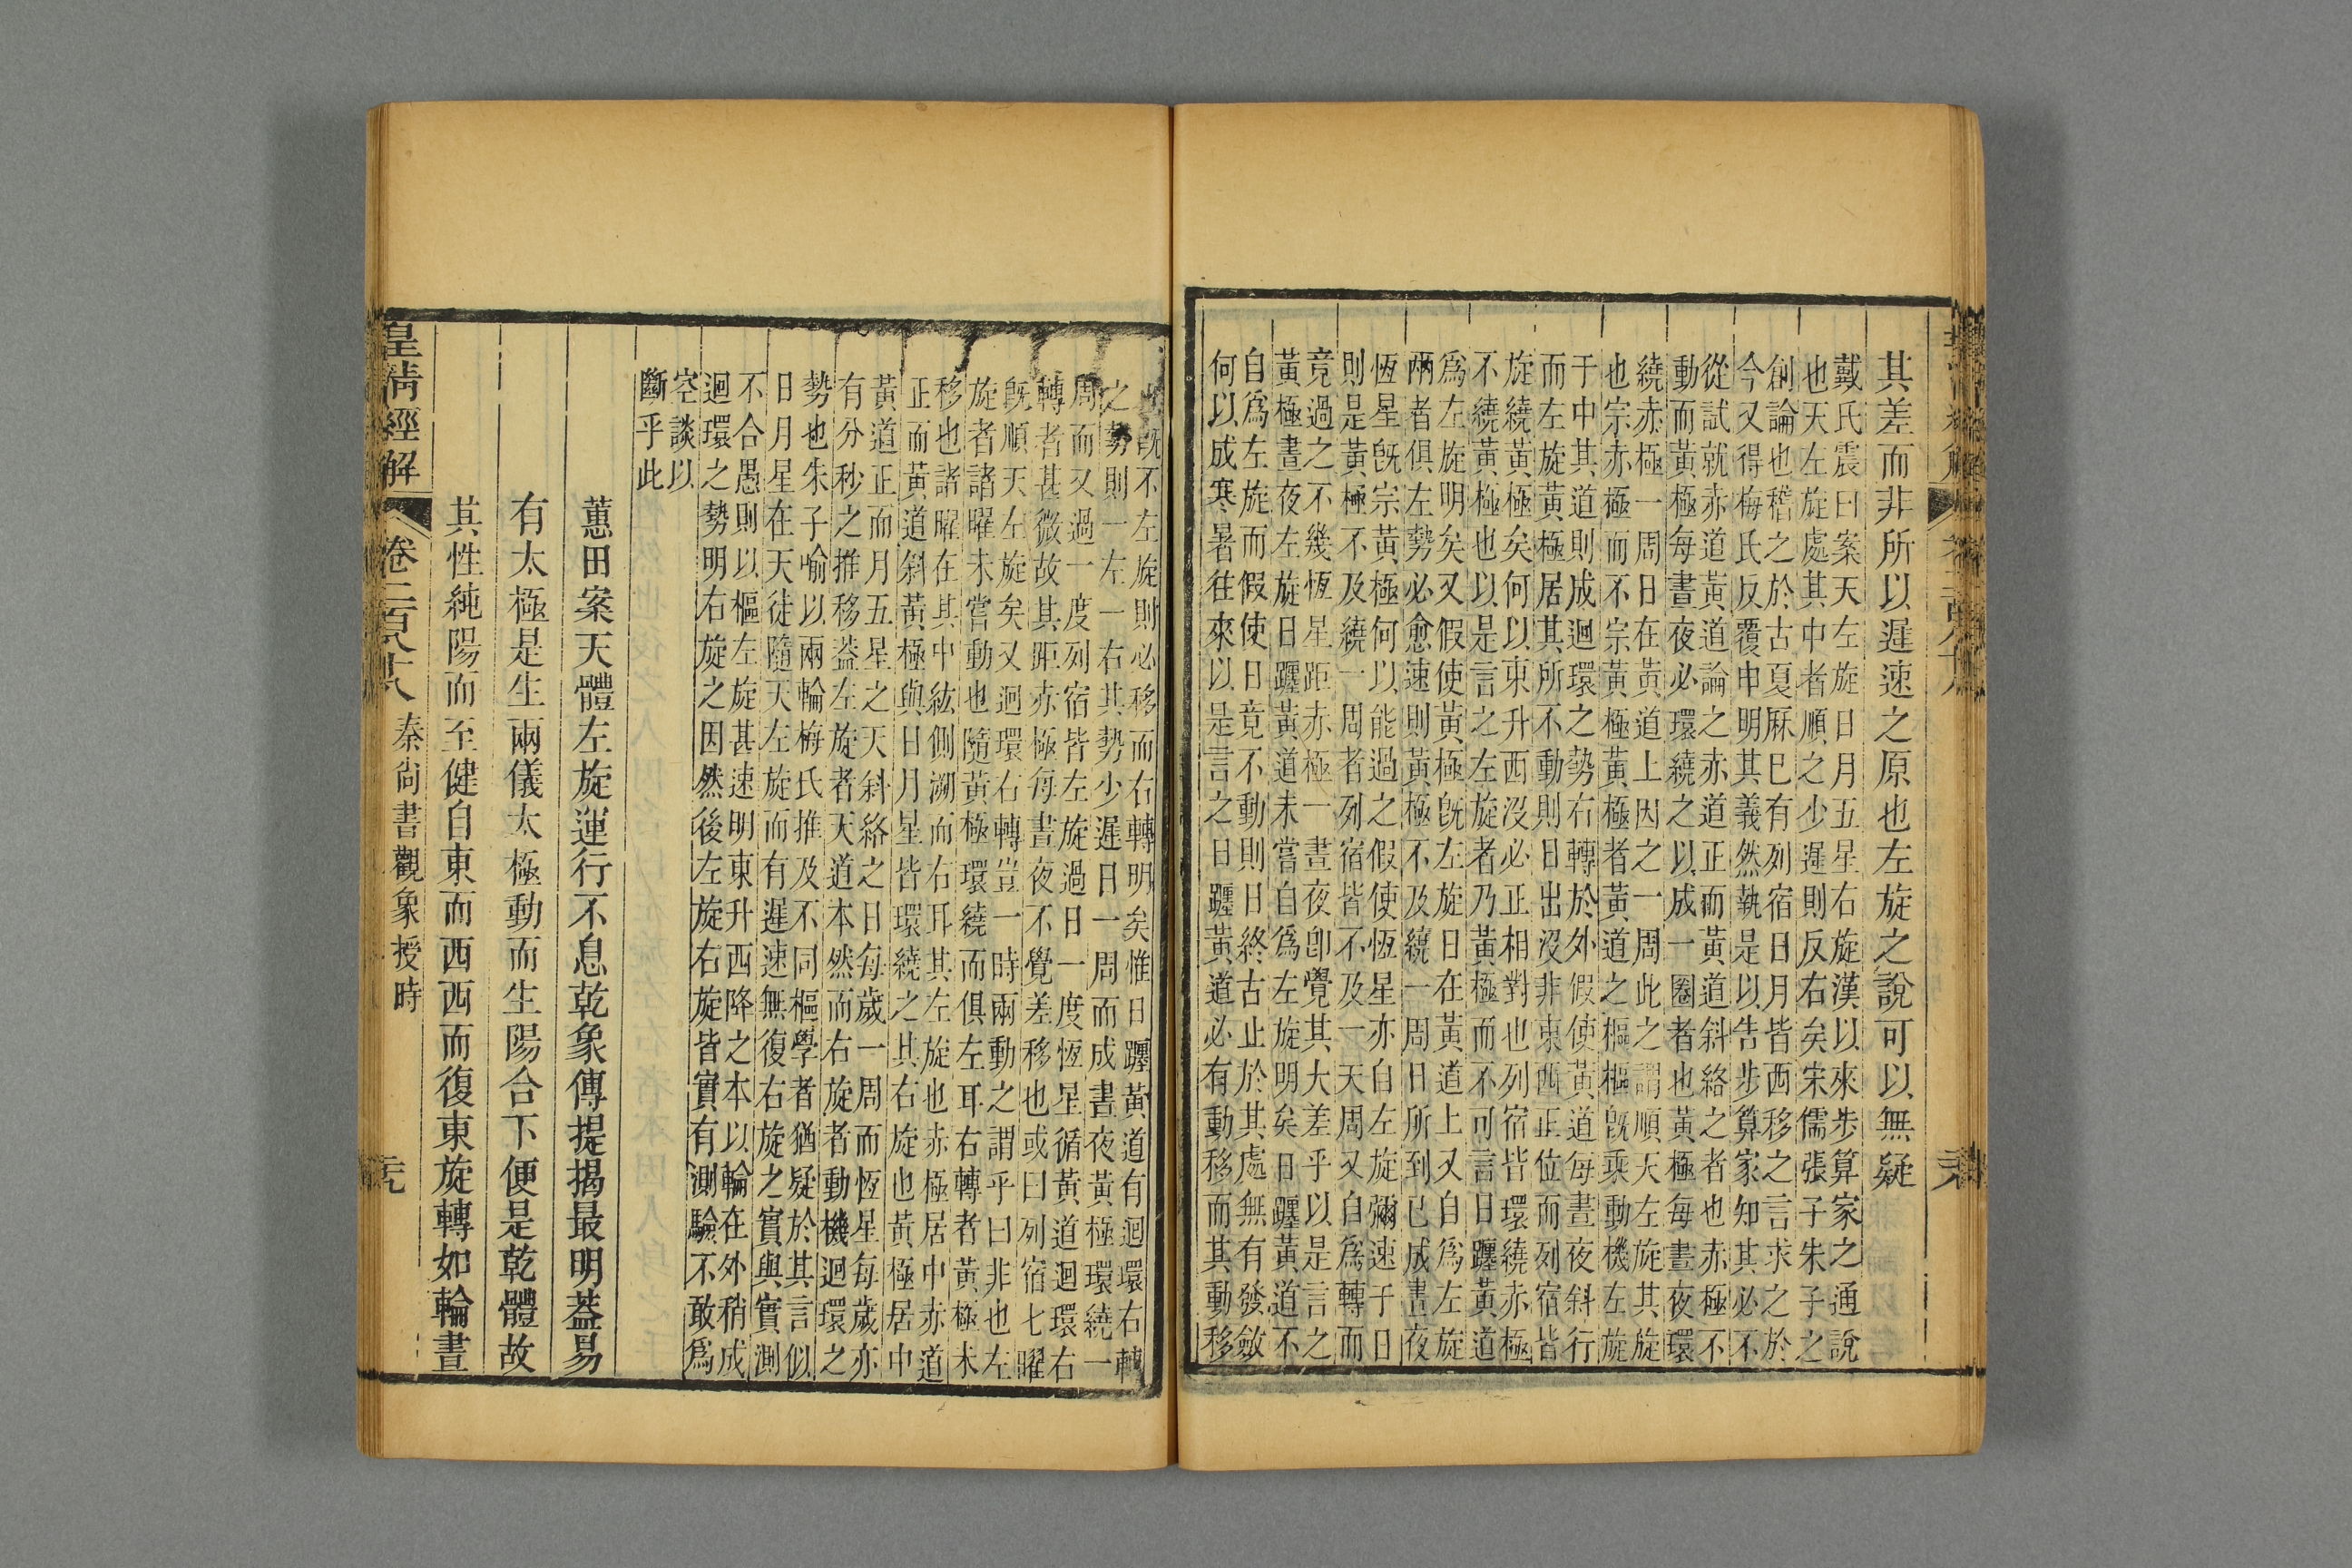 其差而非所以遲速之原也左旋之說可以無疑
戴氏震曰案天左旋日月五星右旋漢以來步算家之通說
也天左旋處其中者順之少遲則反右矣宋儒張子朱子之
創論也稽之於古夏厤巳有列宿日月皆西移之言求之於
今又得梅氏反覆申明其義然執是以告步算家知其必不
從試就赤道黃道論之赤道正而黃道斜絡之者也赤極不
動而黃極每晝夜必環繞之以成一圈者也黃極每晝夜環
繞赤極一周日在黃道上因之一周此之謂順天左旋其旋
也宗赤極而不宗黃極黃極者黃道之樞樞旣乘動機左旋
于中其道則成迴環之勢右轉於外假使黃道每晝夜斜行
而左旋黃極居其所不動則日出沒非東西正位而列宿皆
旋繞黃極矣何以東升西沒必正相對也列宿皆環繞赤極
不繞黃極也以是言之左旋者乃黃極而不可言日躔黃道
爲左旋明矣又假使黃極旣左旋日在黃道上又自爲左旋
兩者俱左勢必愈速則黃極不及繞一周日所到已成晝夜
恆星旣宗黃極何以能過之假使恆星亦自左旋彌速于日
則是黃極不及繞一周者列宿皆不及一天周又自爲轉而
竟過之不幾恆星距赤極一晝夜卽覺其大差乎以是言之
黃極晝夜左旋日躔黃道未嘗自爲左旋明矣日躔黃道不
自爲左旋而假使日竟不動則日終古止於其處無有發斂
何以成寒暑往來以是言之日躔黃道必有動移而其動移
旣不左旋則必移而右轉明矣惟日躔黃道有迴環右轉
之勢則一左一右其勢少遲日一周而成晝夜黃極環繞一
周而又過一度列宿皆左旋過日一度恆星循黃道迴環右
轉者甚微故其距赤極每晝夜不覺差移也或曰列宿七曜
旣順天左旋矣又迴環右轉豈一時兩動之謂乎曰非也左
旋者諸曜未嘗動也隨黃極環繞而俱左耳右轉者黃極未
移也諸曜在其中紘側溯而右耳其左旋也赤極居中赤道
正而黃道斜黃極與日月星皆環繞之其右旋也黃極居中
黃道正而月五星之天斜絡之日每歲一周而恆星每歲亦
有分秒之推移葢左旋者天道本然而右旋者動機迴環之
勢也朱子喻以兩輪梅氏推及不同樞學者猶疑於其言似
日月星在天徒隨天左旋而有遲速無復右旋之實與實測
不合愚則以樞左旋甚速明東升西降之本以輪在外稍成
迴環之勢明右旋之因然後左旋右旋皆實有測驗不敢爲
空談以
斷乎此
蕙田案天體左旋運行不息乾象傳提揭最明葢易
有太極是生兩儀太極動而生陽合下便是乾體故
其性純陽而至健自東而西西而復東旋轉如輪晝
皇清經解 卷二百八十八 秦尙書觀象授時